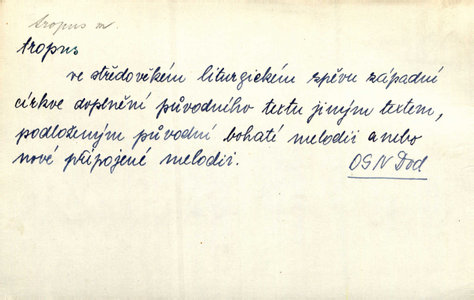 tropus m.
tropus
ve středověkém liturgickém zpěvu západní
církve doplnění původního textu jiným textem,
podloženým původní bohaté melodii anebo
nové připojené melodii.
OSN Dod